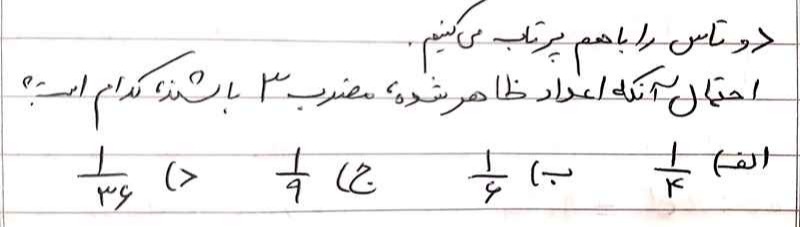 دو تاس را باهم پرتاب می‌کنیم.
احتمال آنکه اعداد ظاهر شده، مضرب ۳ باشند، کدام است؟
الف) ۱/۴ ب) ۱/۶ ج) ۱/۹ د) ۱/۳۶